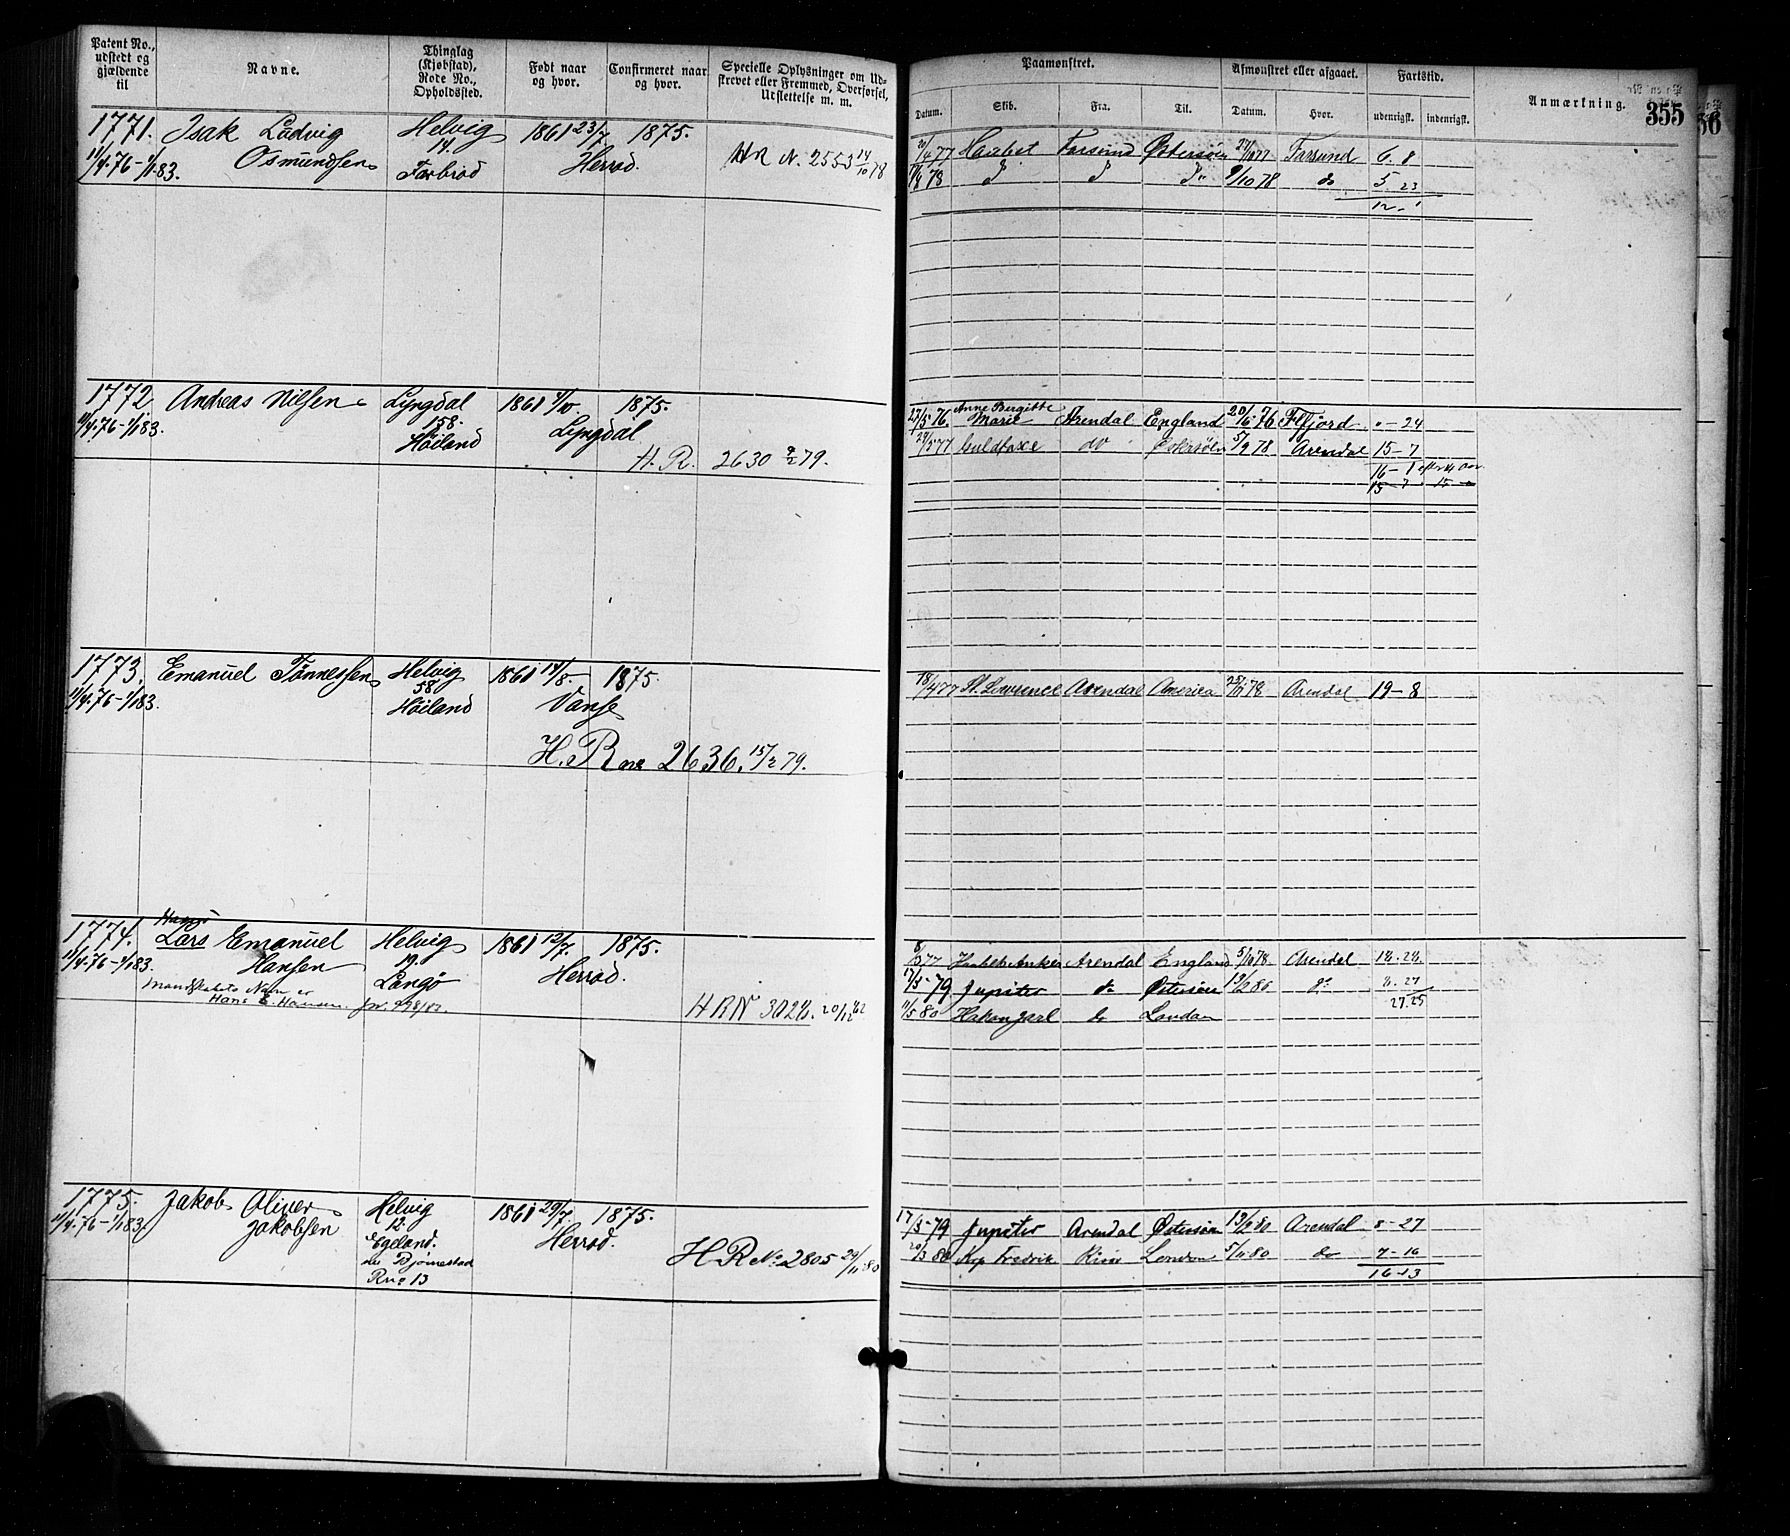 Patent No., udstedt og gjældende til
Navne.
Thinglag (Kjøbstad), Rode No., Opholdssted.
Født naar og hvor.
Confirmeret naar og hvor.
Specielle Oplysninger om Udskrevet eller Fremmed, Overførsel, Udslettelse m. m.
Paamønstret.
Datum.
Skib.
Fra.
Til.
Afmønstret eller afgaaet.
Datum.
Hvor.
Fartstid.
udenrigsk.
indenrigsk.
Anmærkning.
355
56
1771. Isak Ludvig Helvig 1861 23/7 1875.
11/4-76-1/1 83. Osmundsen 14 Herred. HR N. 2553 14/10 78
Farbrod
77 Farsund Østersøen Farsund 6. 8
78 9/10 78 do 5 23
12. 1
1772 Andreas Nilsen Lyngdal 1861 1875.
11/4-76-1/1 83. 158. Lyngdal
Høiland
H. R. 2630 79.
23/5 76. Anne Birgitte Marie Arendal England 76 - 24
77 do Østersøen 5/9 78 Arendal 15-7
16-1
15 7
1773. Emanuel Tønnessen Helvig 1861 14/8 1875.
11/4-76-1/1 83. 58 Vanse
Høiland
H. R no 2636. 15/2 79.
18/4 77 St. Lawrence Arendal America 78 Arendal 19-8
Hans
1774. Lars Emanuel Helvig 1861 12/7. 1875.
11/4-76-1/1 83. Hansen 19. Herred.
Langø
Mandskabets Navn er
Hans E. Hansen
HRN 3024. 20/12 82
77 Arendal England 5/10 78 Arendal 18. 28
17/3-79 Jupiter do Østersøen 19/2 80 do 8. 27
27. 25
11/5 80 Hakon Jarl do London
1775. Jakob Oliver Helvig 1861 29/7. 1875.
11/4-76-1/1 83 Jakobsen 12. Herred.
Egeland.
Bjørnestad
R no 13
H R No 2805 80
17/3-79 Jupiter Arendal Østersøen 19/2 80 Arendal 8-27
20/3 80 Kip Fredrik London 5/11-80 do 7-16
16-13